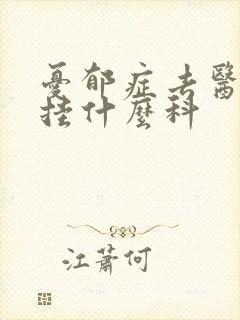 憂郁症去醫
挂什麼科
江蕭何